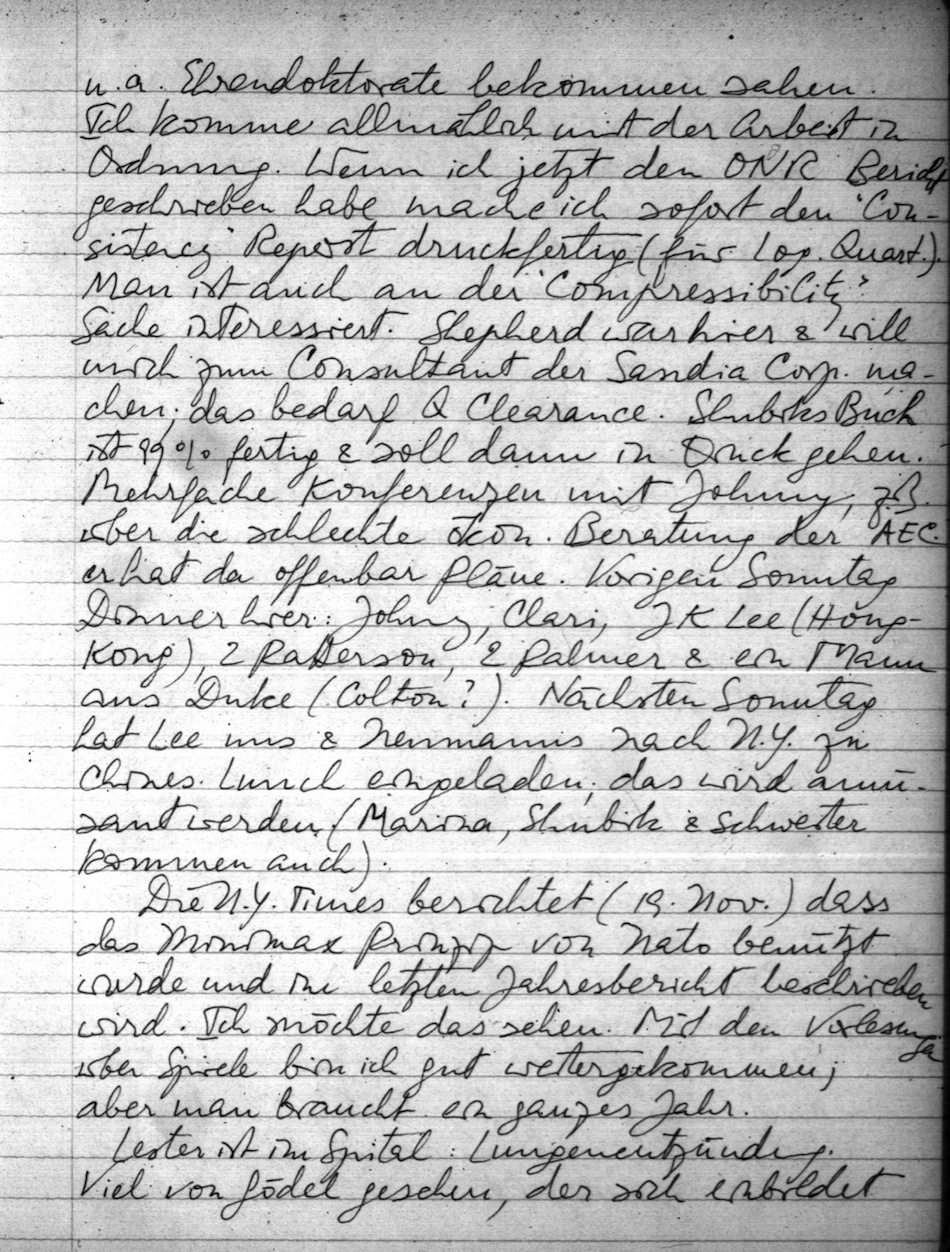 u.a. Ehrendoktorate bekommen sahen.
Ich komme allmählich mit der Arbeit in
Ordnung. Wenn ich jetzt den ONR Bericht
geschrieben habe mache ich sofort den "Con-
sistency" Report druckfertig (für Log. Quart.).
Man ist auch an der "Compressibility"
Sache interessiert. Shepherd war hier & will
mich zum Consultant der Sandia Corp. ma-
chen; das bedarf Q Clearance. Shubiks Buch
ist 99% fertig & soll dann in Druck gehen.
Mehrfache Konferenzen mit Johnny, z.B.
über die schlechte ökon. Beratung der AEC.
er hat da offenbar Pläne. Vorigen Sonntag
Dinner hier: Johny, Clari, JK Lee (Hong-
Kong), 2 Patterson, 2 Palmer & ein Mann
aus Duke (Colton?). Nächsten Sonntag
hat Lee uns & Neumanns nach N.Y. zu
Chines. Lunch eingeladen; das wird amü-
sant werden (Marina, Shubik & Schwester
kommen auch).
Die N.Y. Times berichtet (19. Nov.) dass
das Minimax Prinzip von Nato benützt
wurde und im letzten Jahresbericht beschrieben
wird. Ich möchte das sehen. Mit den Vorlesungen
über Spiele bin ich gut weitergekommen;
aber man braucht ein ganzes Jahr.
Lester ist im Spital: Lungenentzündung.
Viel von Gödel gesehen, der sich einbildet